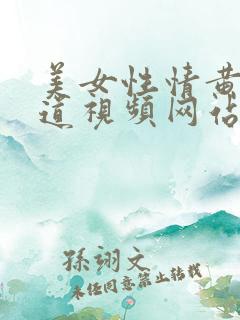 美女性情黄
道视频网站
孫翊文
未经同意禁止转载